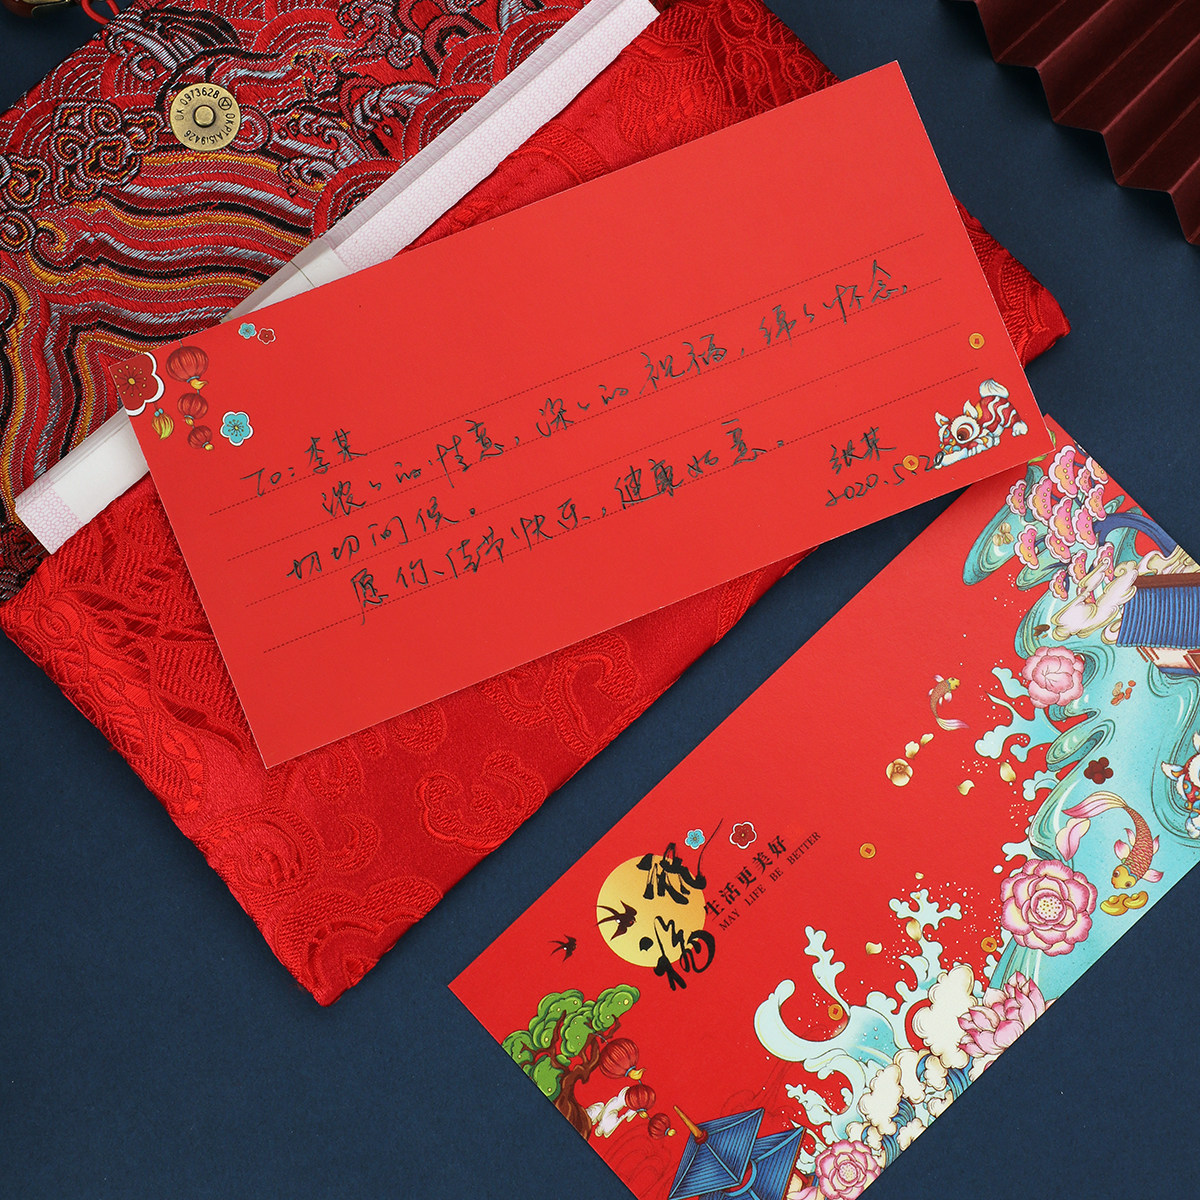 To: 李某
浓々的情意，深々的祝福，绵々怀念，
切切问候。
愿你、佳节快乐，健康如意。
2020.5.20
祝福
生活更美好
MAY LIFE BE BETTER
0973628